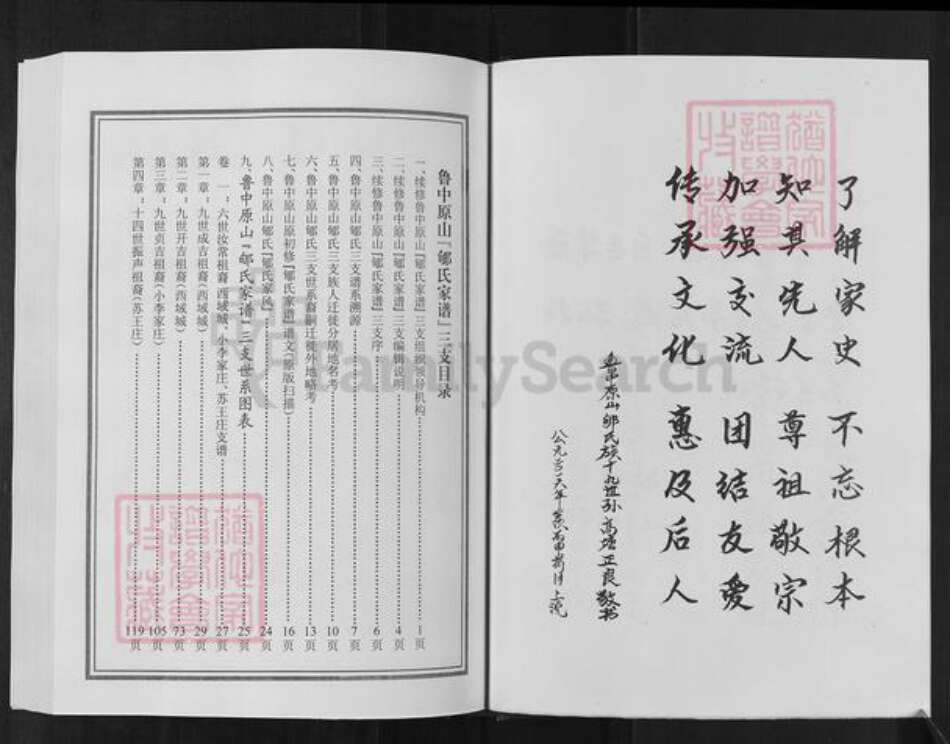 了解家史 不忘根本
知其先人 尊祖敬宗
加强交流 团结友爱
传承文化 惠及后人
鲁中原山郇氏族十九世孙高塘正良敬书
鲁中原山『郇氏家谱』三支目录
一、续修鲁中原山『郇氏家谱』三支组织领导机构 1页
二、续修鲁中原山『郇氏家谱』三支编辑说明 4页
三、续修鲁中原山『郇氏家谱』三支序 6页
四、鲁中原山郇氏三支谱系溯源 7页
五、鲁中原山郇氏三支族人迁徙分居地名考 10页
六、鲁中原山郇氏三支世系裔嗣迁徙外地略考 13页
七、鲁中原山原初修『郇氏家谱』谱文(原版扫描) 16页
八、鲁中原山郇氏『郇氏家风』 24页
九、鲁中原山『郇氏家谱』三支世系图表 25页
卷 一:六世汝常祖裔 西域城、小李家庄、苏王庄支谱 27页
第一章:九世成吉祖裔(西域城) 29页
第二章:九世开吉祖裔(西域城) 73页
第三章:九世贞吉祖裔(小李家庄) 105页
第四章:十四世振声祖裔(苏王庄) 119页
FamilySearch